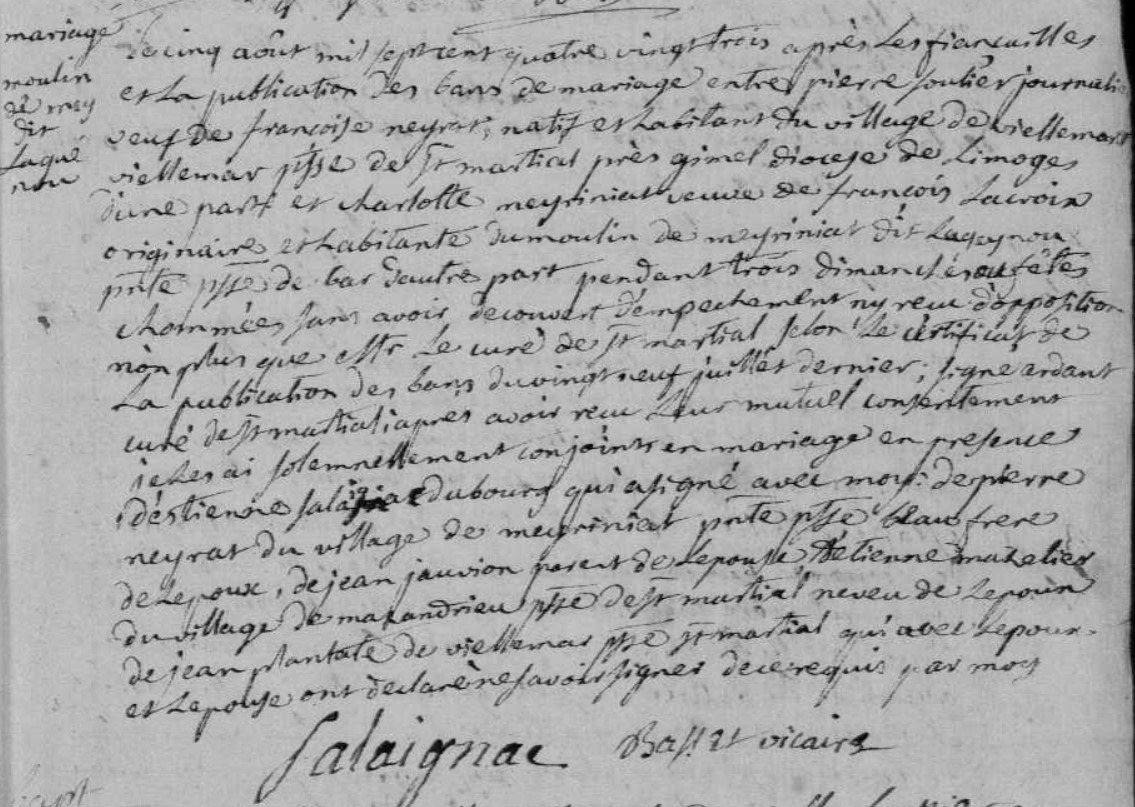 mariage
moulin
de mey
dit
Laque
nou
le cinq aôut mil sept cent quatre vingt trois après Les fiancailles
et La publication des bans de mariage entre pierre soulier journalie
veuf de francoise neyrat, natif et habitant du village de viellemar
viellemar psse de st martial près gimel diocese de Limoges
d'une part et charlotte neyriniat veuve de francois Lacroix
originaire et habitante du moulin de meyriniat dit Lageynou
pnte psse de bar d'autre part pendant trois dimanches ou fêtes
chommées sans avoir decouvert d'empechement ny recu d'opposition
non plus que Le curé de st martial selon Le certificat de
La publication des bans du vingt neuf juillet dernier; signé ardant
curé de st martial; apres avoir recu Leur mutuel consentement
je les ai solemnellement conjoints en mariage en presence
d'estienne du bourg qui a signé avec moy: de pierre
neyrat du village de meyriniat pnte psse beau frere
de Lepoux, de jean jauvion parent de Lepouse, d'etienne mazelier
du village de mazandrieu psse de st martial neveu de Lepoux
de jean plantate de viellemar psse st martial qui avec Lepoux
et Lepouse ont declaré ne savoir signer de ce requis par moy
Salaignac vicaire